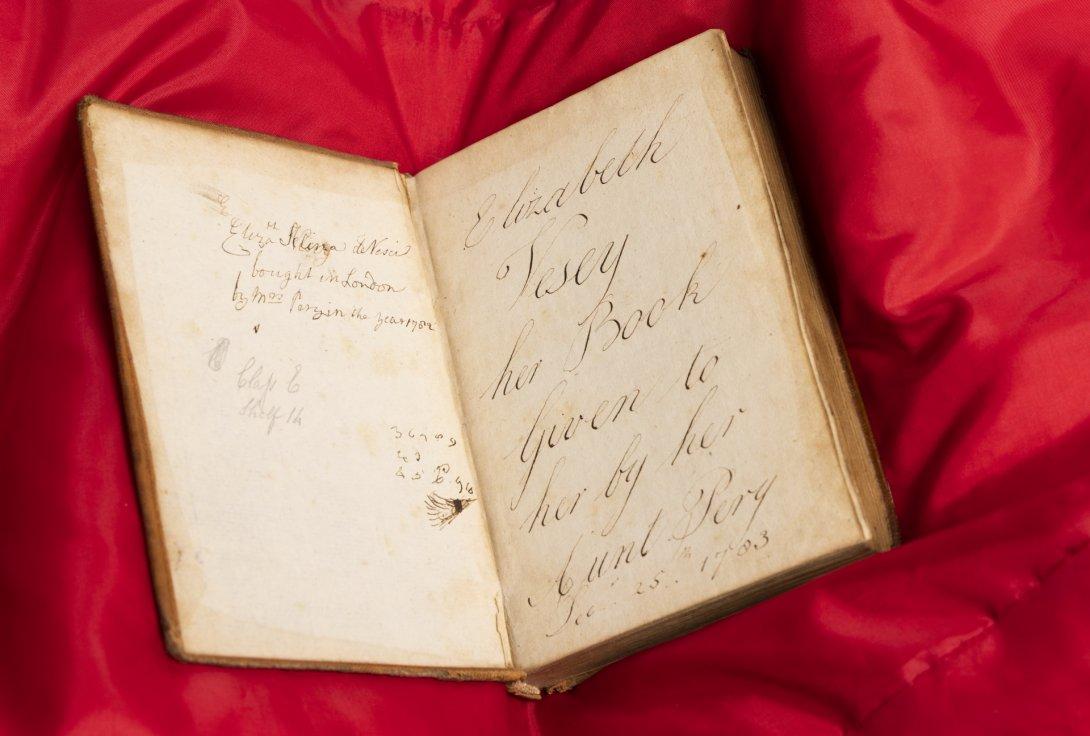 Eliza^th Selina deVesci
bought in London
by M^rs Pery in the year 1782
Class E
Shelf 14
Elizabeth
Vesey
her Book
given to
her by her
Aunt Pery
25^th 1783